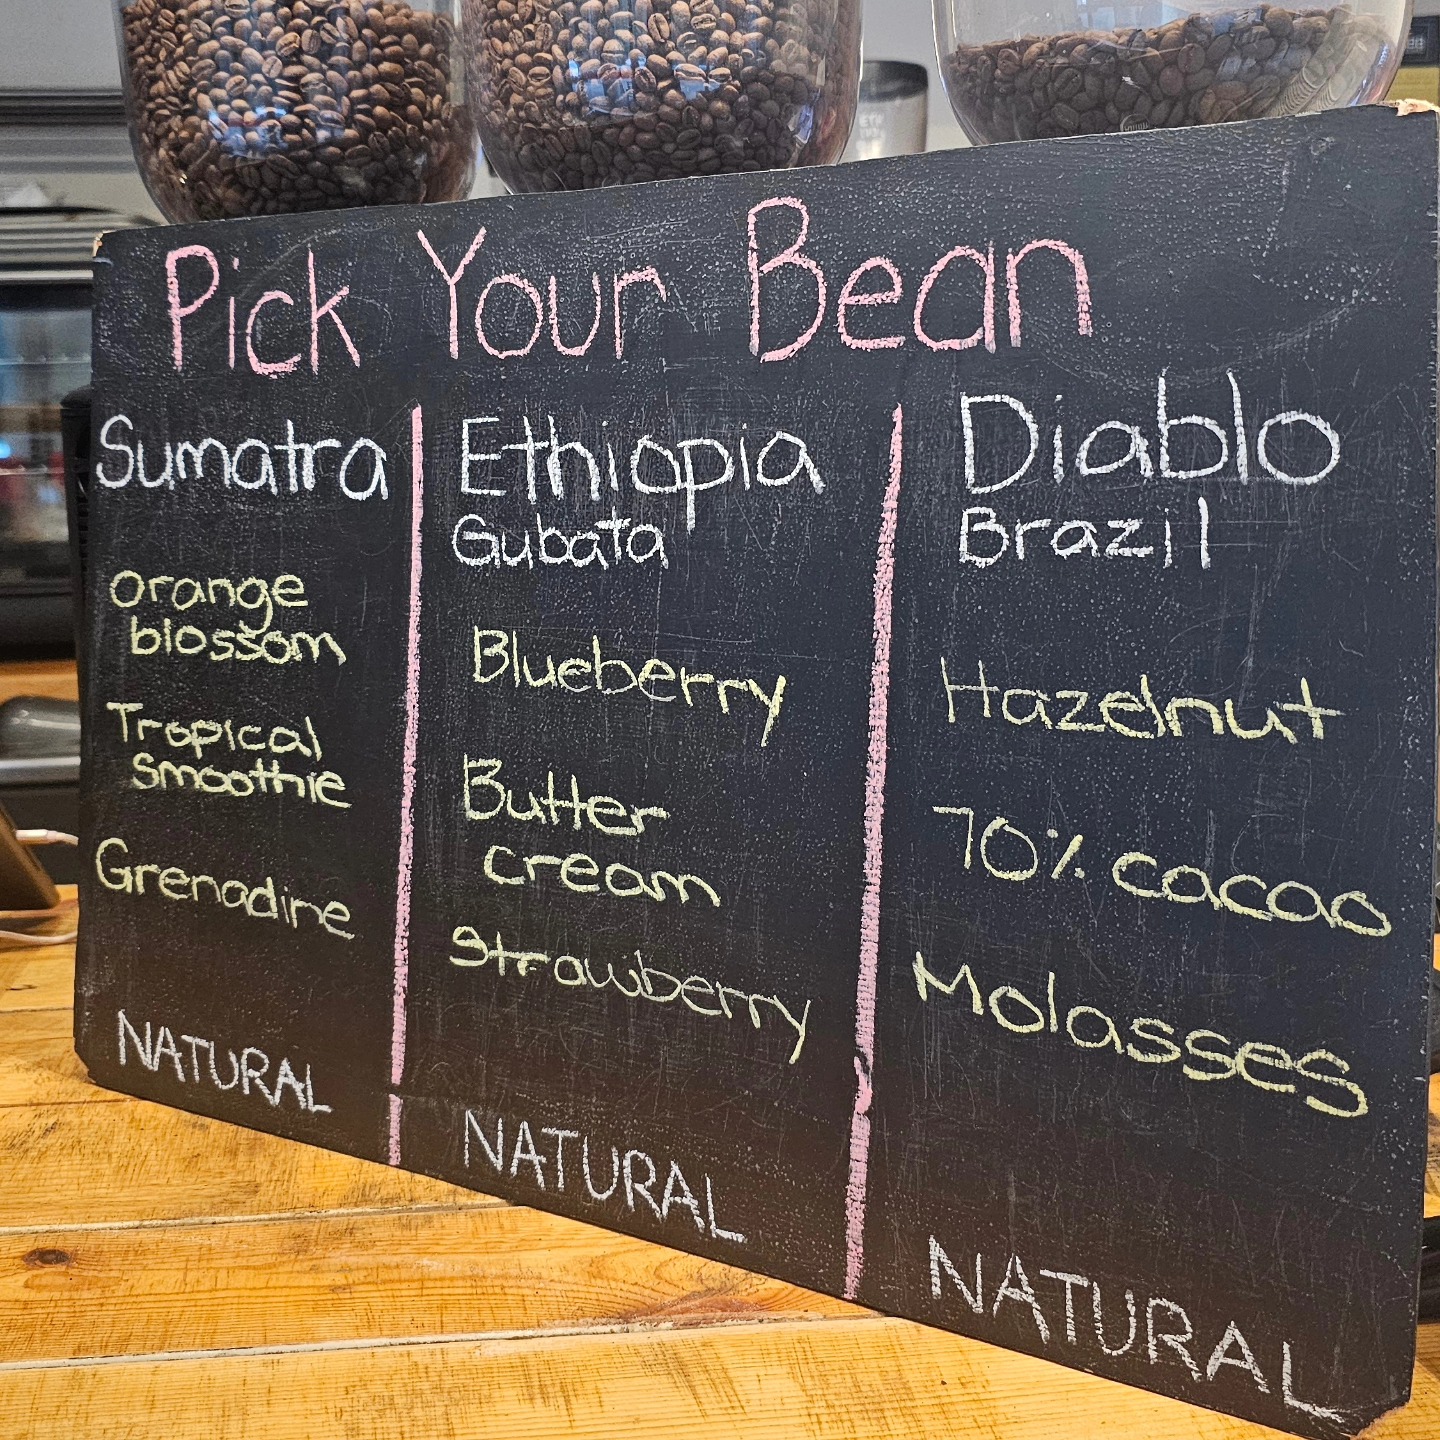 Pick Your Bean
Sumatra
orange
blossom
Tropical
smoothie
Grenadine
NATURAL
Ethiopia
Gubata
Blueberry
Butter
cream
Strawberry
NATURAL
Diablo
Brazil
Hazelnut
70% cacao
Molasses
NATURAL